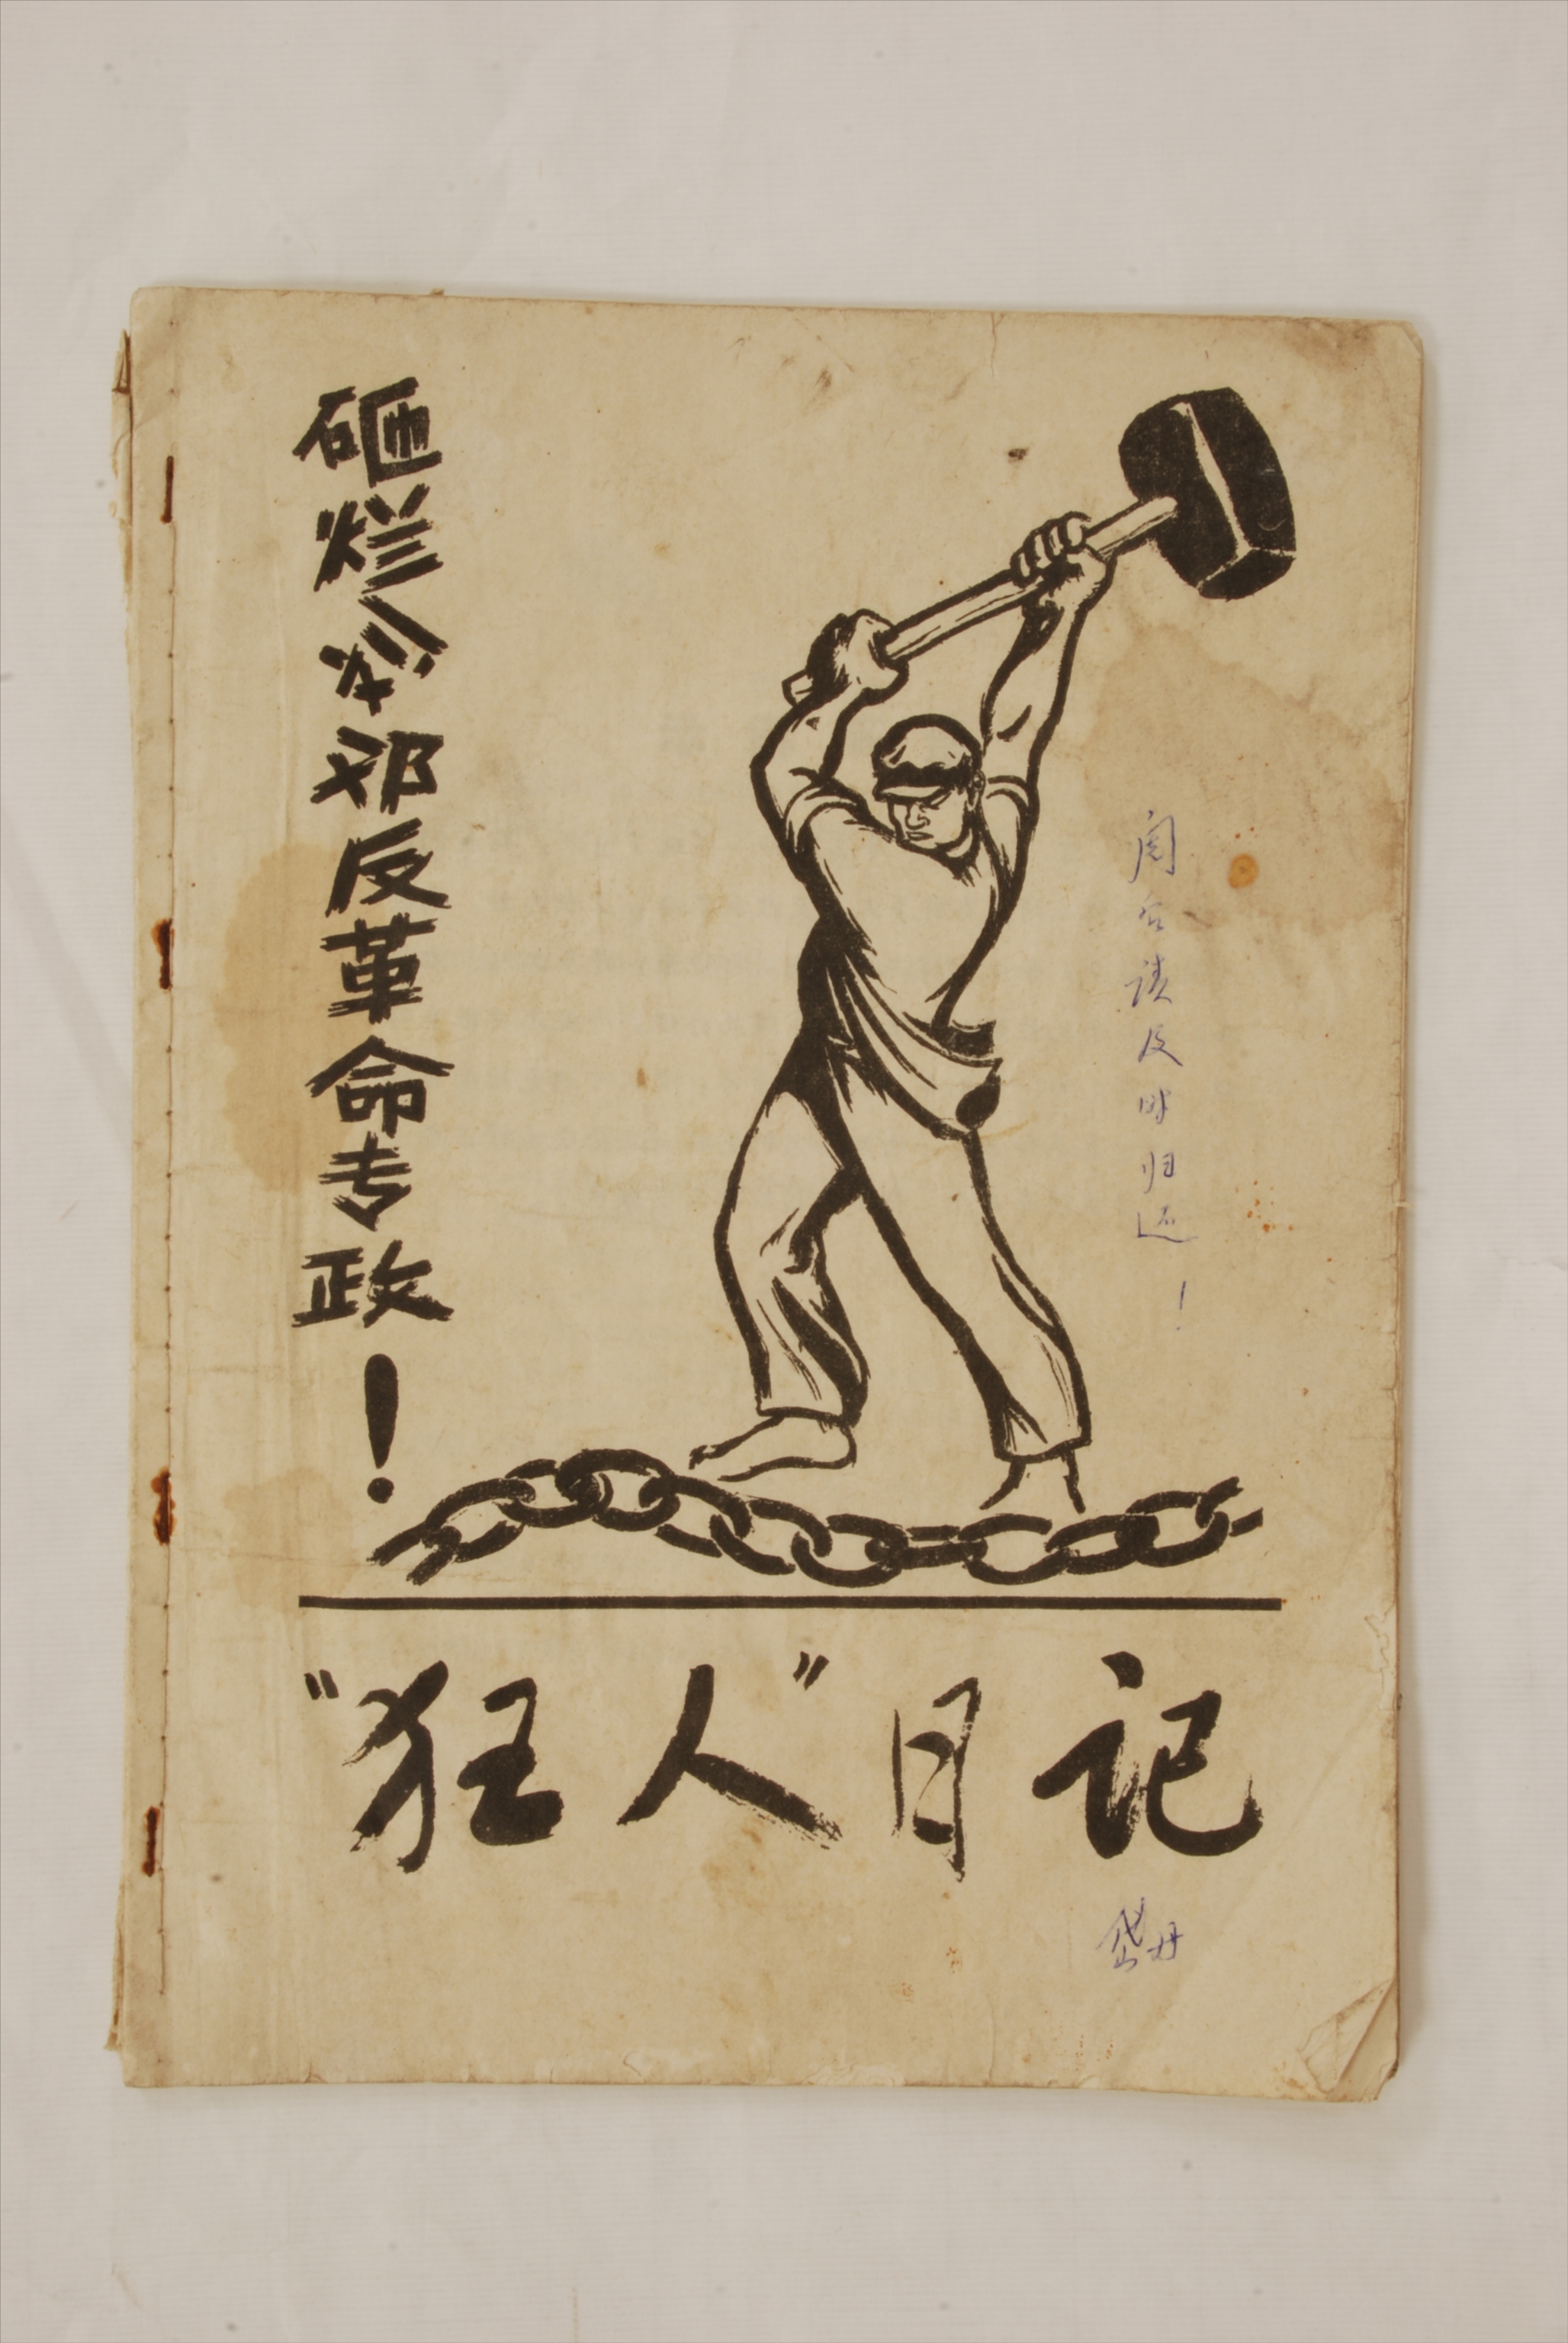 砸烂刘邓反革命专政！
阅后请及时归还！
“狂人”日记
岱丹